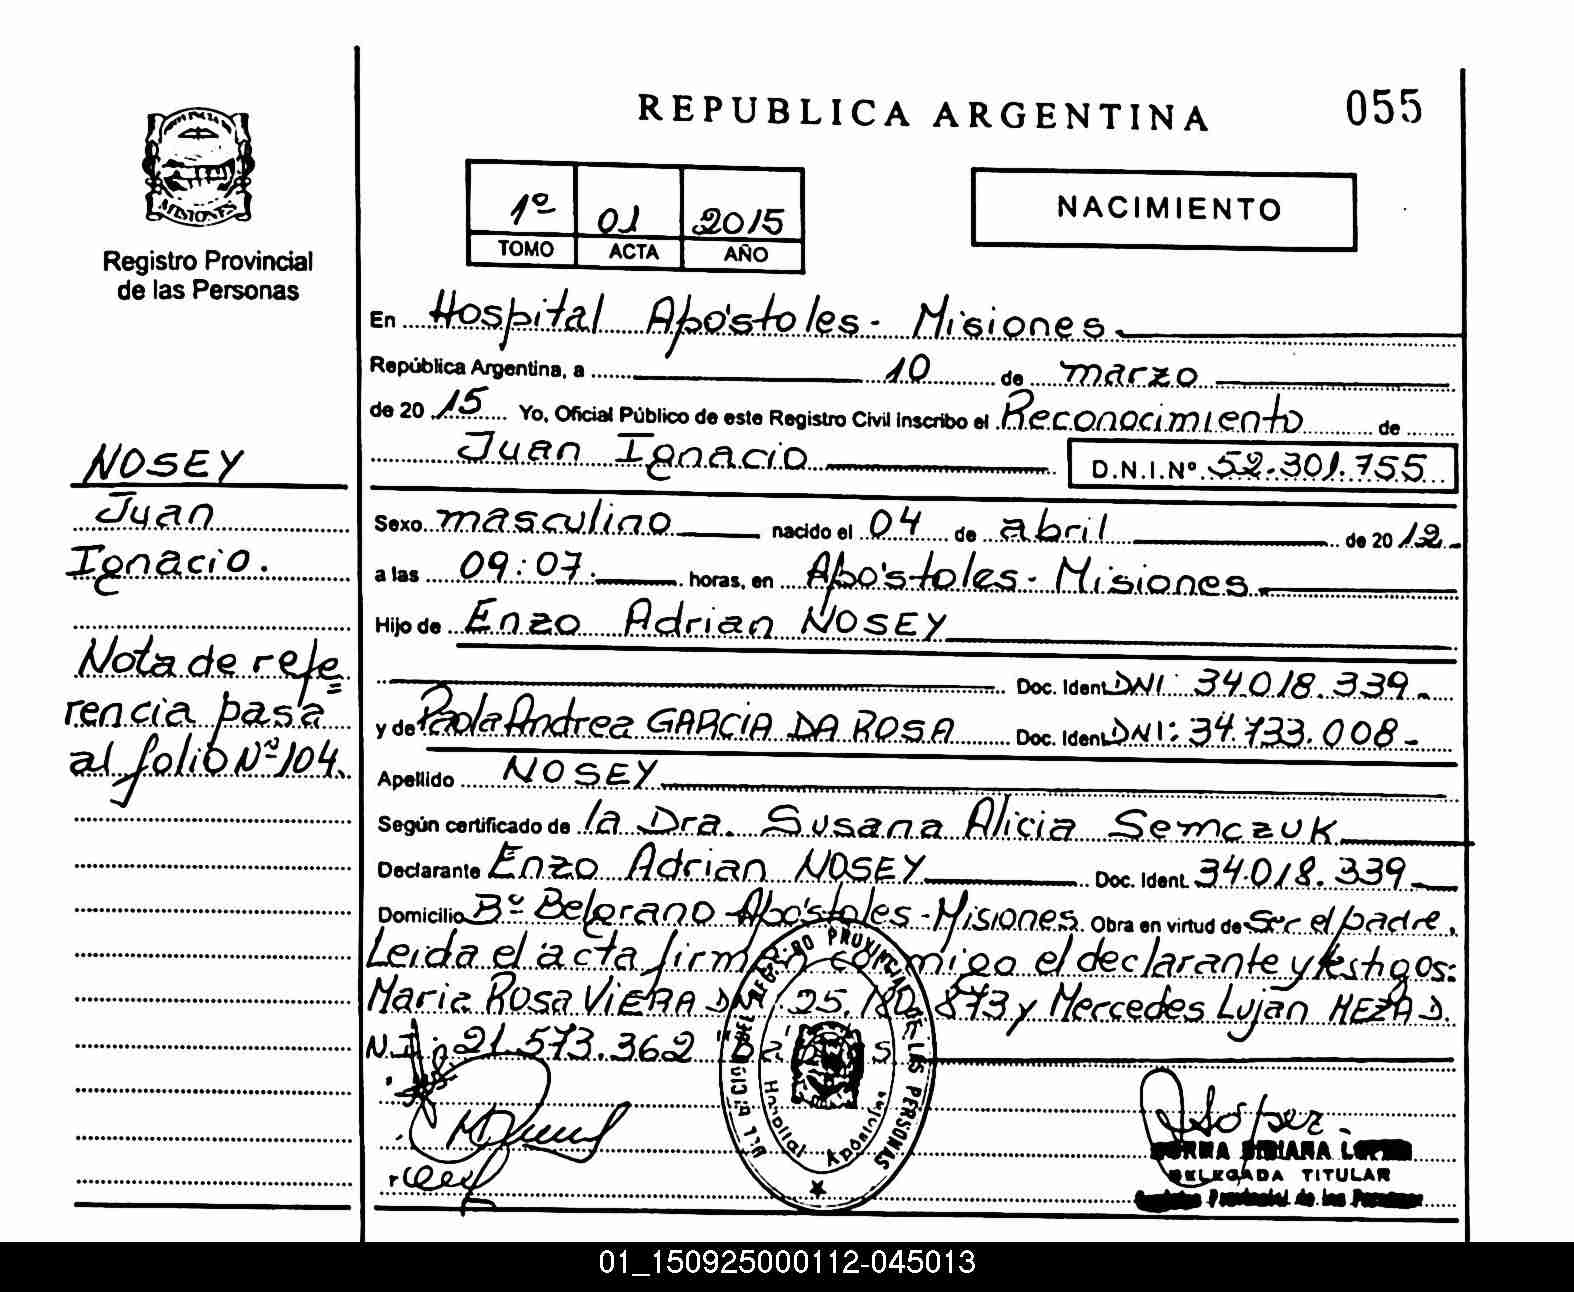 REPUBLICA ARGENTINA
055
MISIONES
Registro Provincial
de las Personas
1º 01 2015
TOMO ACTA AÑO
NACIMIENTO
En Hospital Apóstoles - Misiones
República Argentina, a 10 de marzo
de 20 15 Yo, Oficial Público de este Registro Civil inscribo el Reconocimiento de
Juan Ignacio D.N.I.Nº 52.301.755
Sexo masculino nacido el 04 de abril de 20 12
a las 09:07 horas, en Apóstoles - Misiones
Hijo de Enzo Adrian NOSEY
Doc. Ident. DNI: 34.018.339
y de Paola Andrea GARCIA DA ROSA Doc. Ident. DNI: 34.733.008
Apellido NOSEY
Según certificado de la Dra. Susana Alicia Semczuk
Declarante Enzo Adrian NOSEY Doc. Ident. 34.018.339
Domicilio Bº Belgrano Apóstoles - Misiones. Obra en virtud de Ser el padre.
Leida el acta firman conmigo el declarante y testigos:
Maria Rosa VIERA 25.180.873 y Mercedes Lujan MEZA D.
N.I: 21.573.362
NOSEY
Juan
Ignacio.
Nota de refe
rencia pasa
al folio Nº 104.
REGISTRO PROVINCIAL DE LAS PERSONAS
Hospital Apóstoles
López
DELEGADA TITULAR
01_150925000112-045013